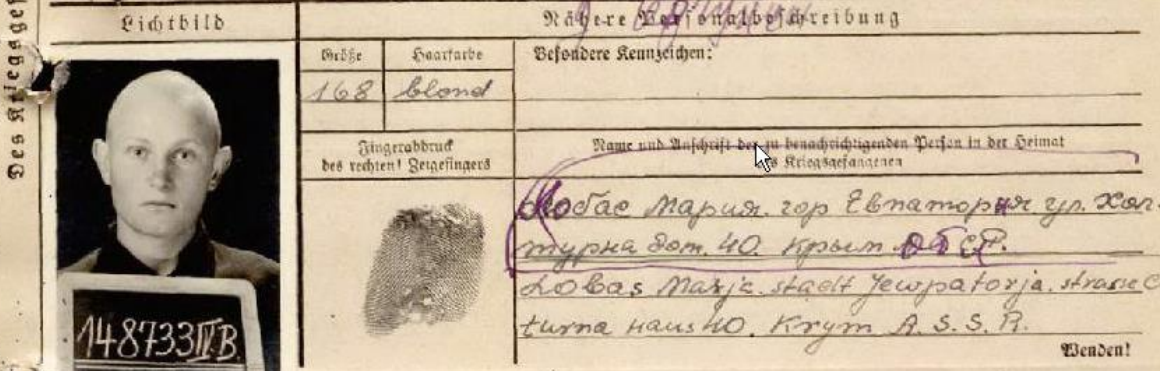 Des Kriegsgef
Lichtbild
Nähere Personalbeschreibung
Größe
Haarfarbe
Besondere Kennzeichen:
168
blond
Fingerabdruck
des rechten! Zeigefingers
Name und Anschrift der zu benachrichtigenden Person in der Heimat
des Kriegsgefangenen
Лобас Мария. гор Евпатория ул. Хал-
турна дом. 40. Крым
Lobas Marja. stadt Jewpatorja. strasse
turna haus 40. Krym A. S. S. R.
148733 IV B.
Wenden!